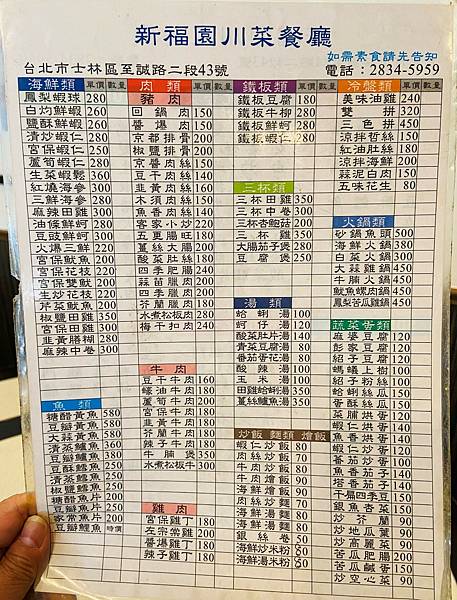 新福園川菜餐廳
如需素食請先告知
台北市士林區至誠路二段43號
電話：2834-5959
海鮮類 單價 數量
鳳梨蝦球 280
白灼鮮蝦 260
鹽酥鮮蝦 260
清炒蝦仁 250
宮保蝦仁 250
蘆筍蝦仁 250
生菜蝦鬆 360
紅燒海參 300
三鮮海參 280
麻辣田雞 300
油條鮮蚵 280
豆豉鮮蚵 280
火爆三鮮 220
宮保魷魚 200
宮保花枝 220
宮保雙魷 200
生炒花枝 220
芹菜魷魚 200
椒鹽田雞 350
宮保田雞 300
韭黃鱔糊 280
麻辣中卷 300
魚類 單價 數量
糖醋黃魚 580
豆瓣黃魚 580
大蒜黃魚 580
清蒸鱸魚
豆瓣鱸魚
豆酥鱈魚
清蒸鱈魚
椒鹽鱈魚
糖醋魚片 200
豆瓣魚片 200
家常魚片 200
豆瓣鯉魚 時價
肉類 單價 數量
豬肉
回鍋肉 150
醬爆肉 150
京都排骨 200
椒鹽排骨 200
京醬肉絲 150
豆干肉絲 150
韭黃肉絲 150
木須肉絲 150
魚香肉絲 140
客家小炒 220
五更腸旺 180
薑絲大腸 200
酸菜肚絲 180
四季肥腸 240
蒜苗臘肉 200
四季臘肉 200
芥蘭臘肉 200
水煮松板肉 240
梅干扣肉 240
牛肉
豆干牛肉 160
蠔油牛肉 180
蘆筍牛肉 200
宮保牛肉 180
韭黃牛肉 180
芥蘭牛肉 180
辣子牛肉 180
牛腩煲 350
水煮松板牛 300
雞肉
宮保雞丁 180
左宗棠雞 200
醬爆雞丁 180
辣子雞丁 180
鐵板類 單價 數量
鐵板豆腐 180
鐵板牛柳 280
鐵板鮮蚵 280
鐵板蝦仁 280
三杯類
三杯田雞 350
三杯中卷 300
三杯杏鮑菇 200
三杯雞 350
大腸茄子煲 250
豆腐煲 250
湯類
蛤蜊湯 100
蚵仔湯 120
酸菜肚片湯 140
青菜豆腐湯 80
番茄蛋花湯 80
酸辣湯 100
玉米湯 100
田雞蛤蜊湯 350
薑絲鱸魚湯 350
炒飯 麵類 燴飯
蝦仁炒飯 80
肉絲炒飯 70
牛肉炒飯 80
牛肉燴飯 90
海鮮燴飯 90
肉絲炒麵 70
海鮮湯麵 80
海鮮炒麵 80
銀絲卷 50
海鮮炒米粉 90
海鮮湯米粉 90
冷盤類 單價 數量
美味油雞 240
雙拼 320
三色拼 450
涼拌哲絲 150
紅油肚絲 180
涼拌海鮮 200
蒜泥白肉 150
五味花生 80
火鍋類
砂鍋魚頭 500
海鮮火鍋 380
白菜火鍋 300
大蒜雞鍋 450
牛腩火鍋 450
魷魚螺肉鍋 450
鳳梨苦瓜雞鍋 450
蔬菜蛋類
麻婆豆腐 120
彭家豆腐 120
紹子豆腐 120
螞蟻上樹 100
紹子粉絲 100
蛤蜊絲瓜 150
蛋酥絲瓜 150
菜脯烘蛋 120
蝦仁烘蛋 140
魚香烘蛋 120
蝦仁炒蛋 120
番茄炒蛋 100
魚香茄子 120
塔香茄子 120
干扁四季豆 150
銀魚杏菜 150
炒芥蘭 90
炒地瓜葉 90
炒高麗菜 90
苦瓜肥腸 200
苦瓜鹹蛋 150
炒空心菜 90